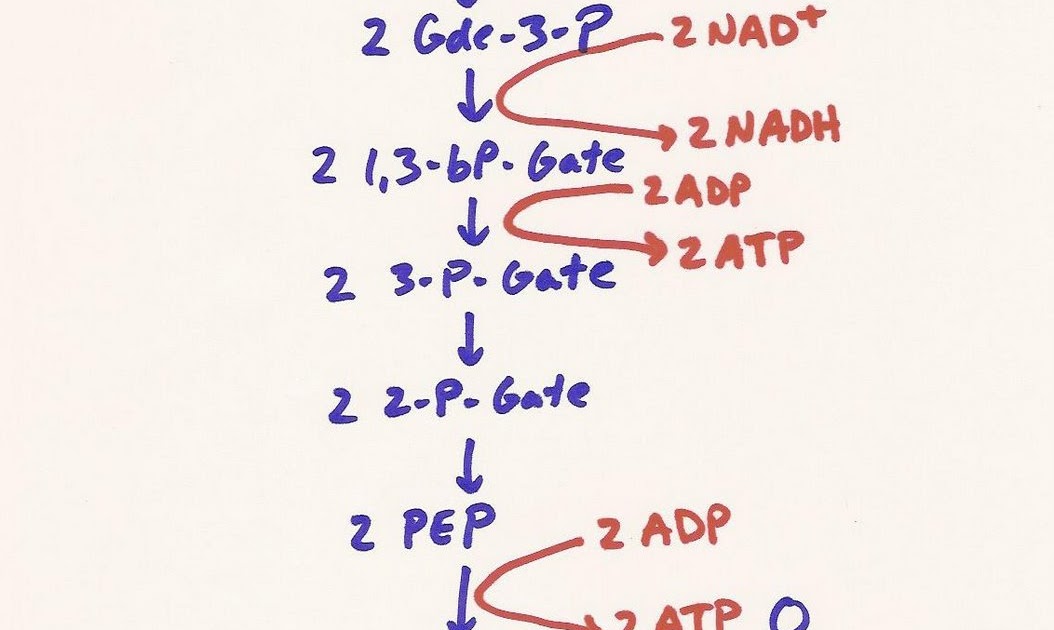 2 Gde-3-P 2 NAD+
2 NADH
2 1,3-bP-Gate
2 ADP
2 ATP
2 3-P-Gate
2 2-P-Gate
2 PEP 2 ADP
2 ATP